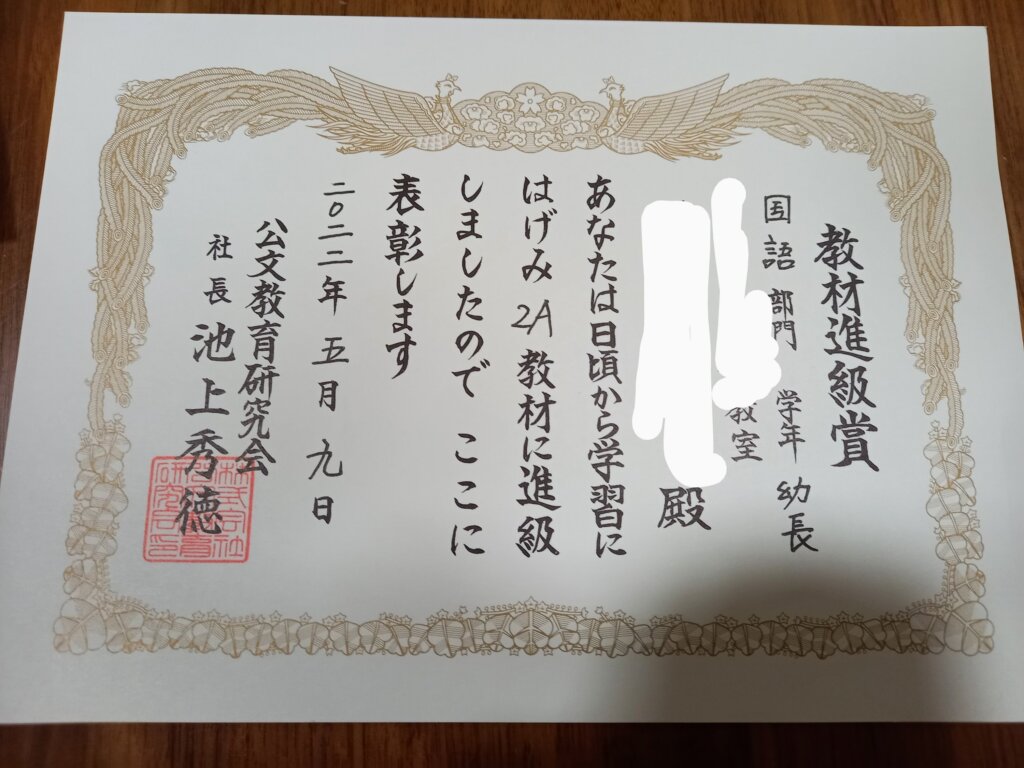 教材進級賞
国語 部門 学年 幼長
教室
殿
あなたは日頃から学習に
はげみ 2A 教材に進級
しましたので ここに
表彰します
二〇二二年 五月 九日
公文教育研究会
社長 池上秀徳